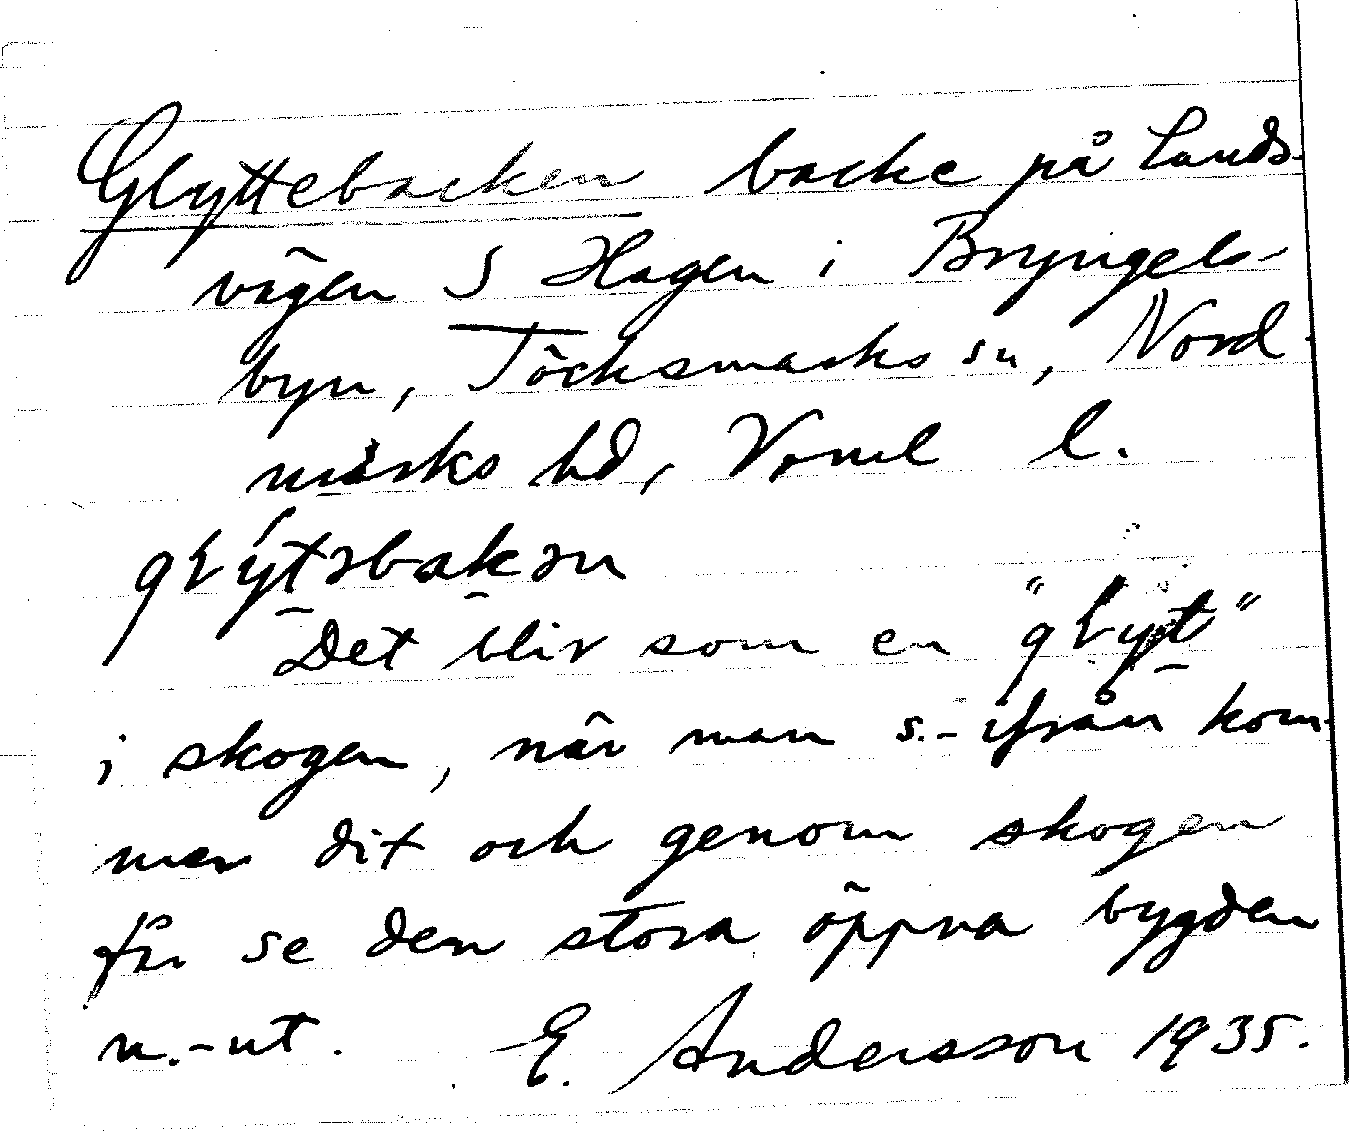 Glyttebacken backe på Lands-
vägen S Hagen i Bryngels-
byn, Töcksmarks sn, Nord-
marks hd, Värml l.
gɽýt̲əbak̄ən
Det blir som en "gɽyt̲"
i skogen, när man s.-ifrån kom-
mer dit och genom skogen
får se den stora öppna bygden
n.-ut. E. Andersson 1935.